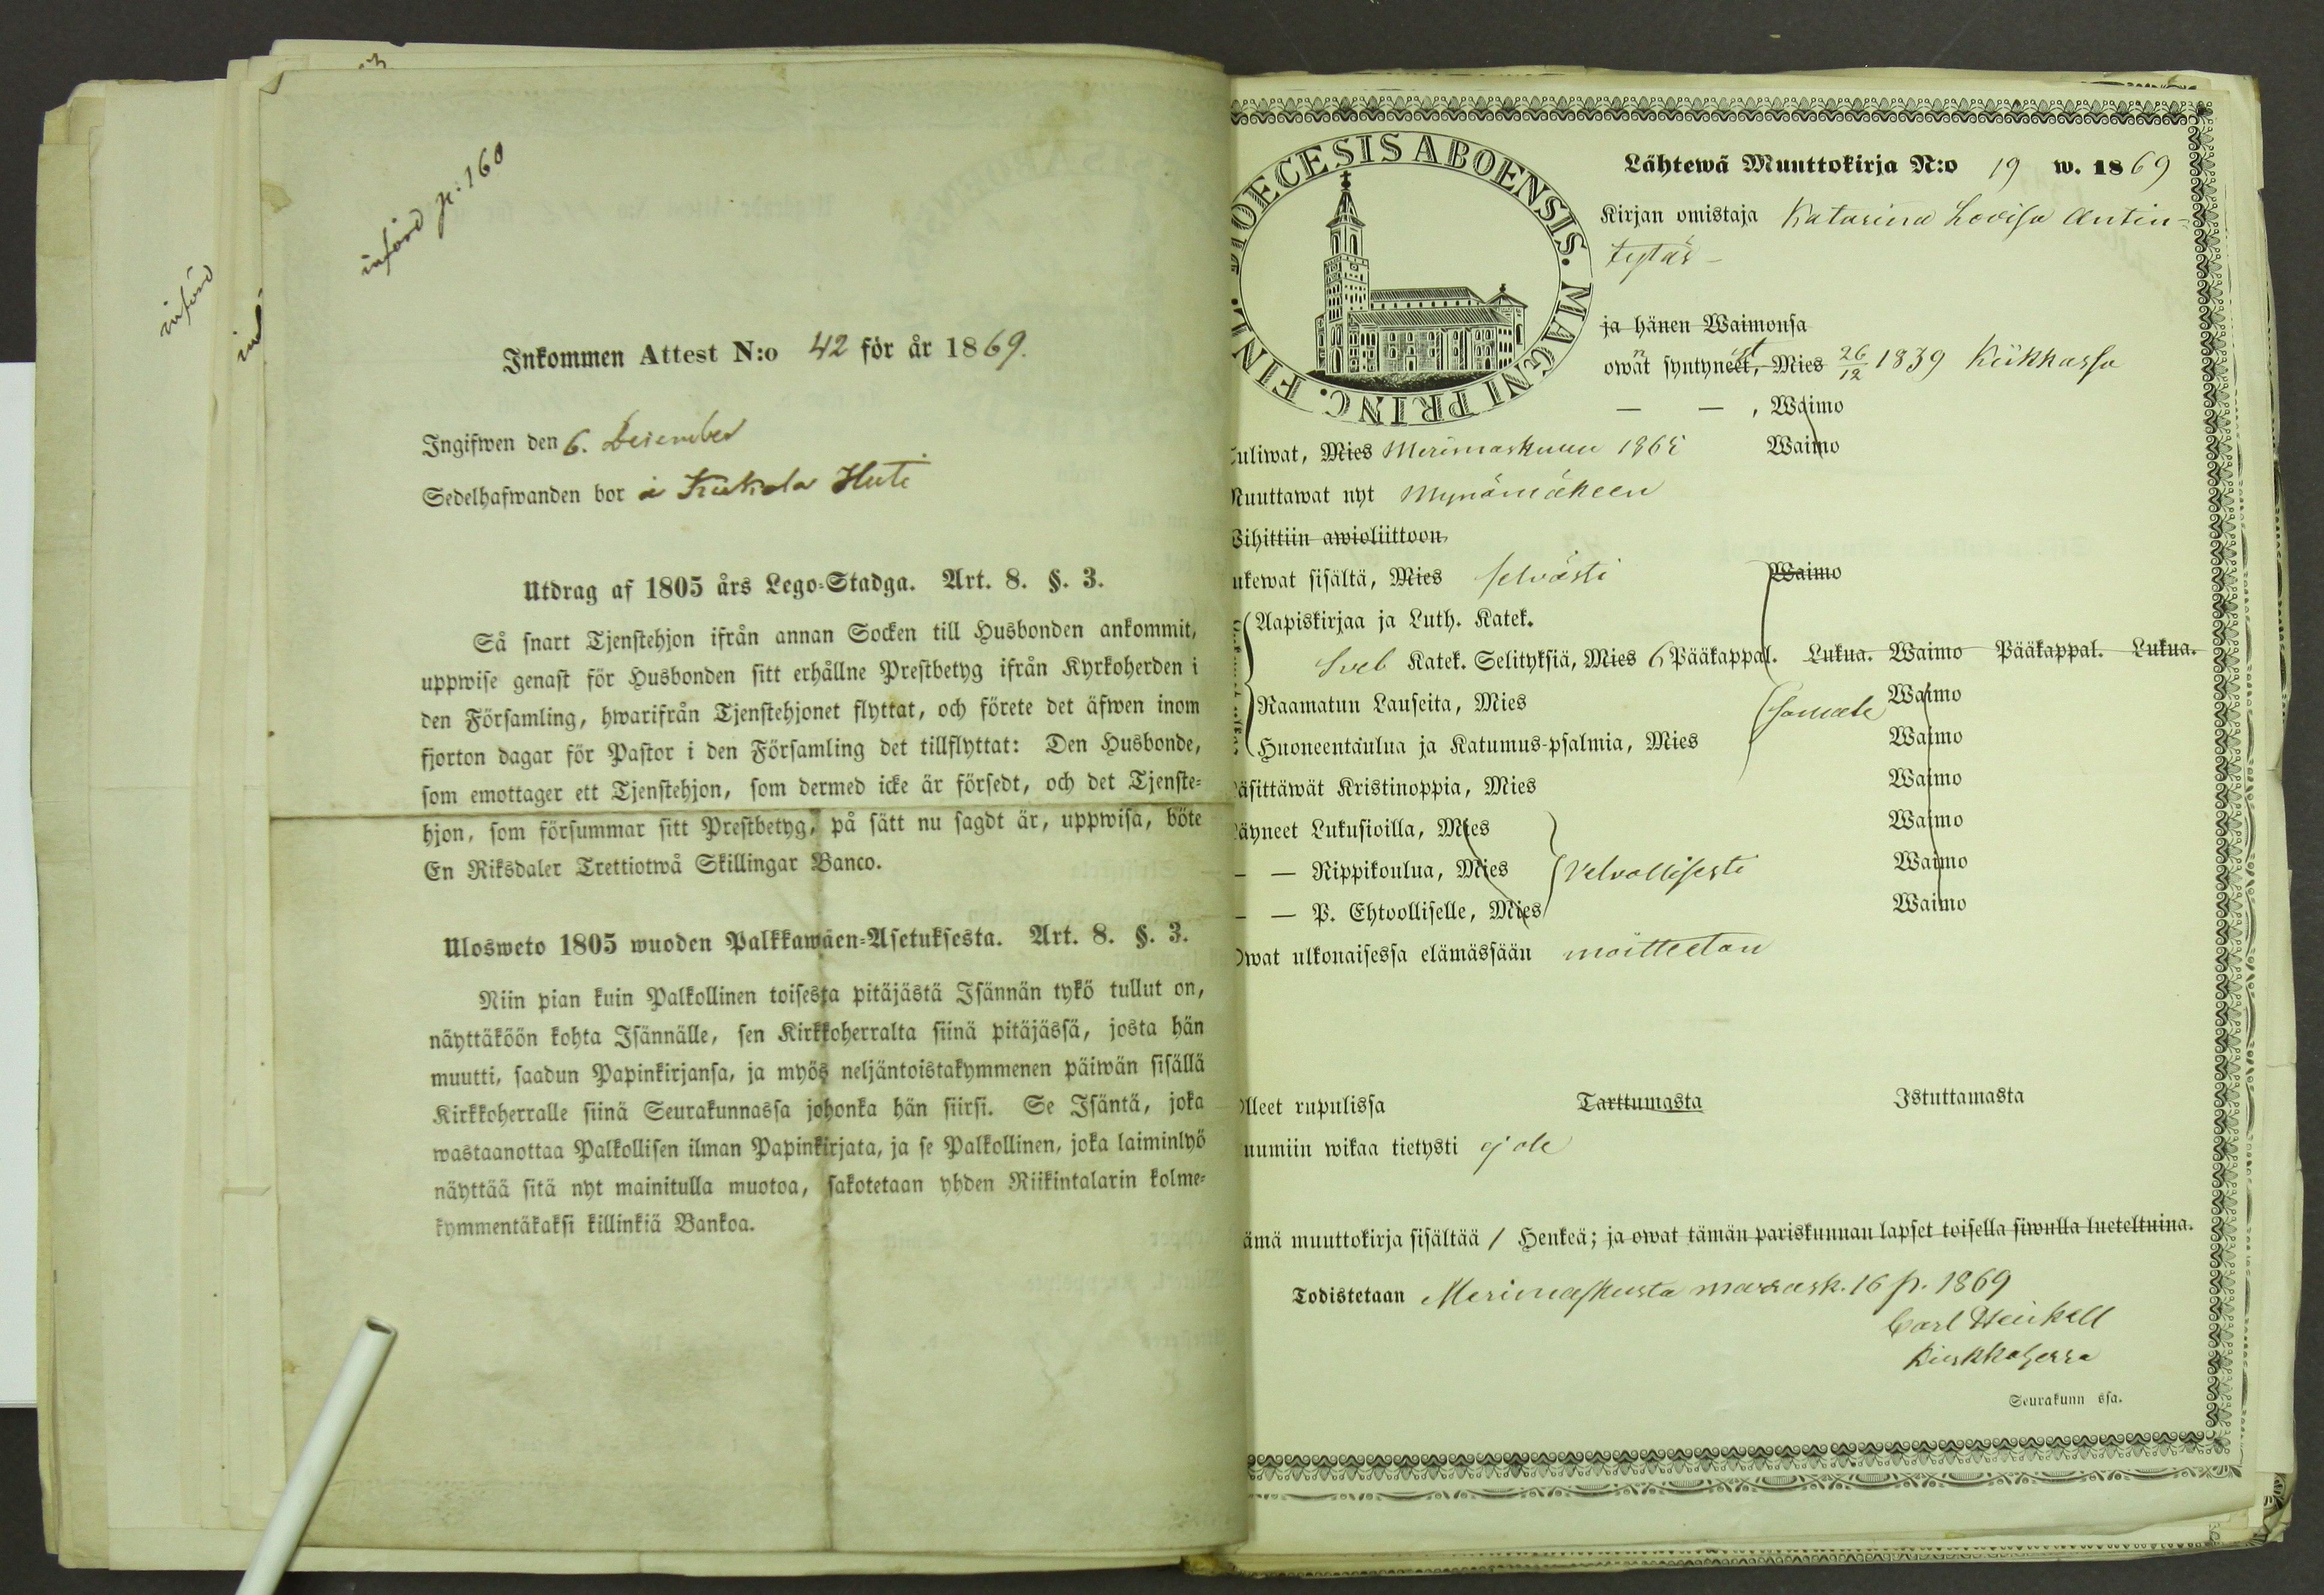 införd
införd p. 160
Inkommen Attest N:o 42 för år 1869.
Ingifwen den 6. December
Sedelhafwanden bor å
Utdrag af 1805 års Lego-Stadga. Art. 8. §. 3.
Så snart Tjenstehjon ifrån annan Socken till Husbonden ankommit,
uppwise genast för Husbonden sitt erhållne Prestbetyg ifrån Kyrkoherden i
den Församling, hwarifrån Tjenstehjonet flyttat, och förete det äfwen inom
fjorton dagar för Pastor i den Församling det tillflyttat: Den Husbonde,
som emottager ett Tjenstehjon, som dermed icke är försedt, och det Tjenste-
hjon, som försummar sitt Prestbetyg, på sätt nu sagdt är, uppwisa, böte
En Riksdaler Trettiotwå Skillingar Banco.
Ulosweto 1805 wuoden Palkkawäen-Asetuksesta. Art. 8. §. 3.
Niin pian kuin Palkollinen toisesta pitäjästä Isännän tykö tullut on,
näyttäköön kohta Isännälle, sen Kirkkoherralta siinä pitäjässä, josta hän
muutti, saadun Papinkirjansa, ja myös neljäntoistakymmenen päiwän sisällä
Kirkkoherralle siinä Seurakunnassa johonka hän siirsi. Se Isäntä, joka
wastaanottaa Palkollisen ilman Papinkirjata, ja se Palkollinen, joka laiminlyö
näyttää sitä nyt mainitulla muotoa, sakotetaan yhden Riikintalarin kolme-
kymmentäkaksi killinkiä Bankoa.
DIOECESIS ABOENSIS. MAGNI PRINC. FINL.
Lähtewä Muuttokirja N:o 19 w. 1869
Kirjan omistaja Katarina Lovisa Antin-
tytär
ja hänen Waimonsa
owat syntyneet, Mies 26/12 1839 Kiikkassa
— — , Waimo
uliwat, Mies Merimaskuun 1865 Waimo
Muuttawat nyt Mynämäkeen
Wihittiin awioliittoon
ukewat sisältä, Mies selvästi Waimo
Aapiskirjaa ja Luth. Katek.
Sveb Katek. Selityksiä, Mies 6 Pääkappal. Lukua. Waimo Pääkappal. Lukua.
Raamatun Lauseita, Mies Waimo
Huoneentaulua ja Katumus-psalmia, Mies Waimo
äsittäwät Kristinoppia, Mies Waimo
äyneet Lukusioilla, Mies Waimo
— — Rippikoulua, Mies Velvollisesti Waimo
— — P. Ehtoolliselle, Mies Waimo
Owat ulkonaisessa elämässään moitteetan
Olleet rupulissa Tarttumasta Istuttamasta
uumiin wikaa tietysti ej ole
ämä muuttokirja sisältää 1 Henkeä; ja owat tämän pariskunnan lapset toisella siwulla lueteltuina.
Todistetaan Merimaskusta marrask. 16 p. 1869
Carl Heinkell
Kirkkoherra
Seurakunn ssa.